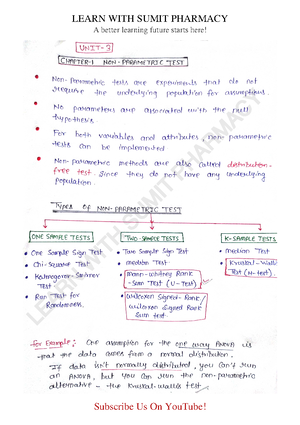 LEARN WITH SUMIT PHARMACY
A better learning future starts here!
UNIT-3
CHAPTER-1 NON-PARAMETRIC TEST
Non-Parametric tests are experiments that do not
require the underlying population for assumptions.
No parameters are associated with the null
hypothesis.
For both variables and attributes, non-parametric
tests can be implemented
Non-Parametric methods are also called distribution-
free test. Since they do not have any underlying
population.
Types of NON-PARAMETRIC TEST
ONE SAMPLE TESTS
TWO-SAMPLE TESTS
K-SAMPLE TESTS
One Sample Sign Test
Two Sample Sign Test
Median Test
Chi-Square Test
Median Test
Kruskal-Wallis
Test (H-test)
Kolmogorov-Smirnov
Test
Mann-Whitney Rank
-Sum Test (U-Test)
Run Test for
Randomness
Wilcoxon Signed-Rank/
Wilcoxon Signed Rank
Sum test
For Example: One assumption for the one way ANOVA is
that the data comes from a normal distribution.
If data isn't normally distributed, you can't run
an ANOVA, but you can run the non-parametric
alternative - the Kruskal-wallis test.
LEARN WITH SUMIT PHARMACY
Subscribe Us On YouTube!